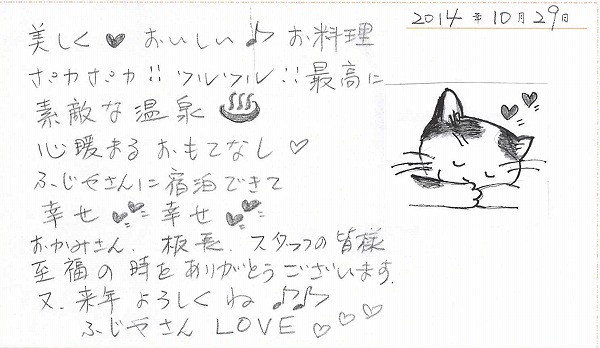 2014年10月29日
美しく♥おいしい♪お料理
ポカポカ!!ツルツル!!最高に
素敵な温泉♨
心暖まるおもてなし♡
ふじやさんに宿泊できて
幸せ♥♥幸せ♥♥
おかみさん、板長、スタッフの皆様
至福の時をありがとうございます。
又、来年よろしくね♪♪
ふじやさんLOVE♡♡♡